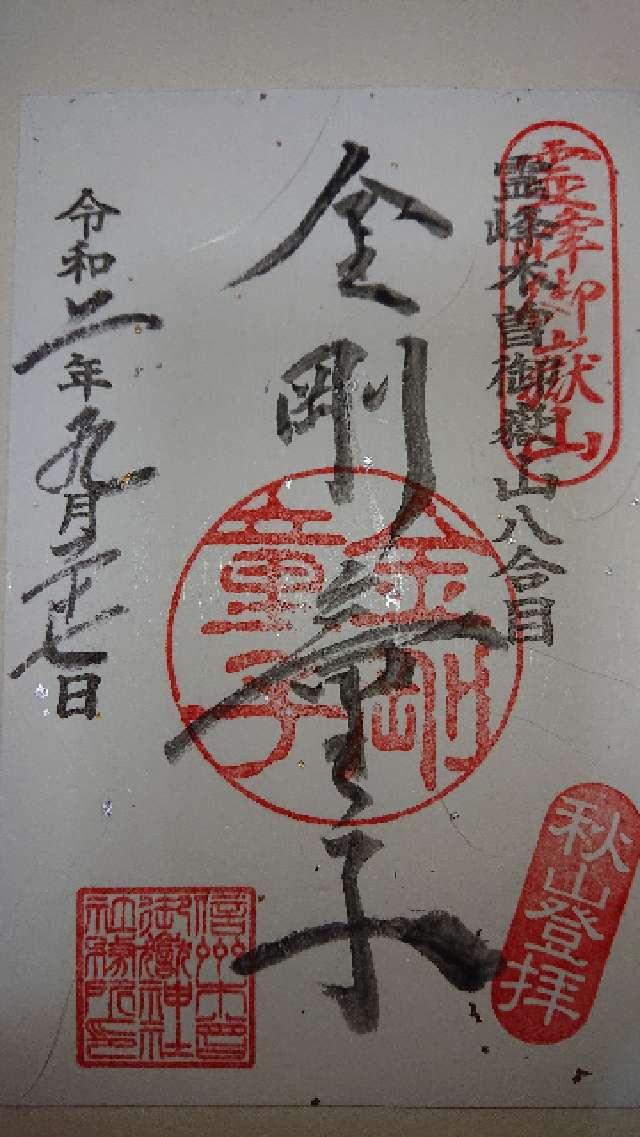 霊峰御嶽山
霊峰木曽御嶽山八合目
金剛童子
金剛童子
秋山登拝
令和二年九月二十七日
信州木曽御嶽神社社務所印